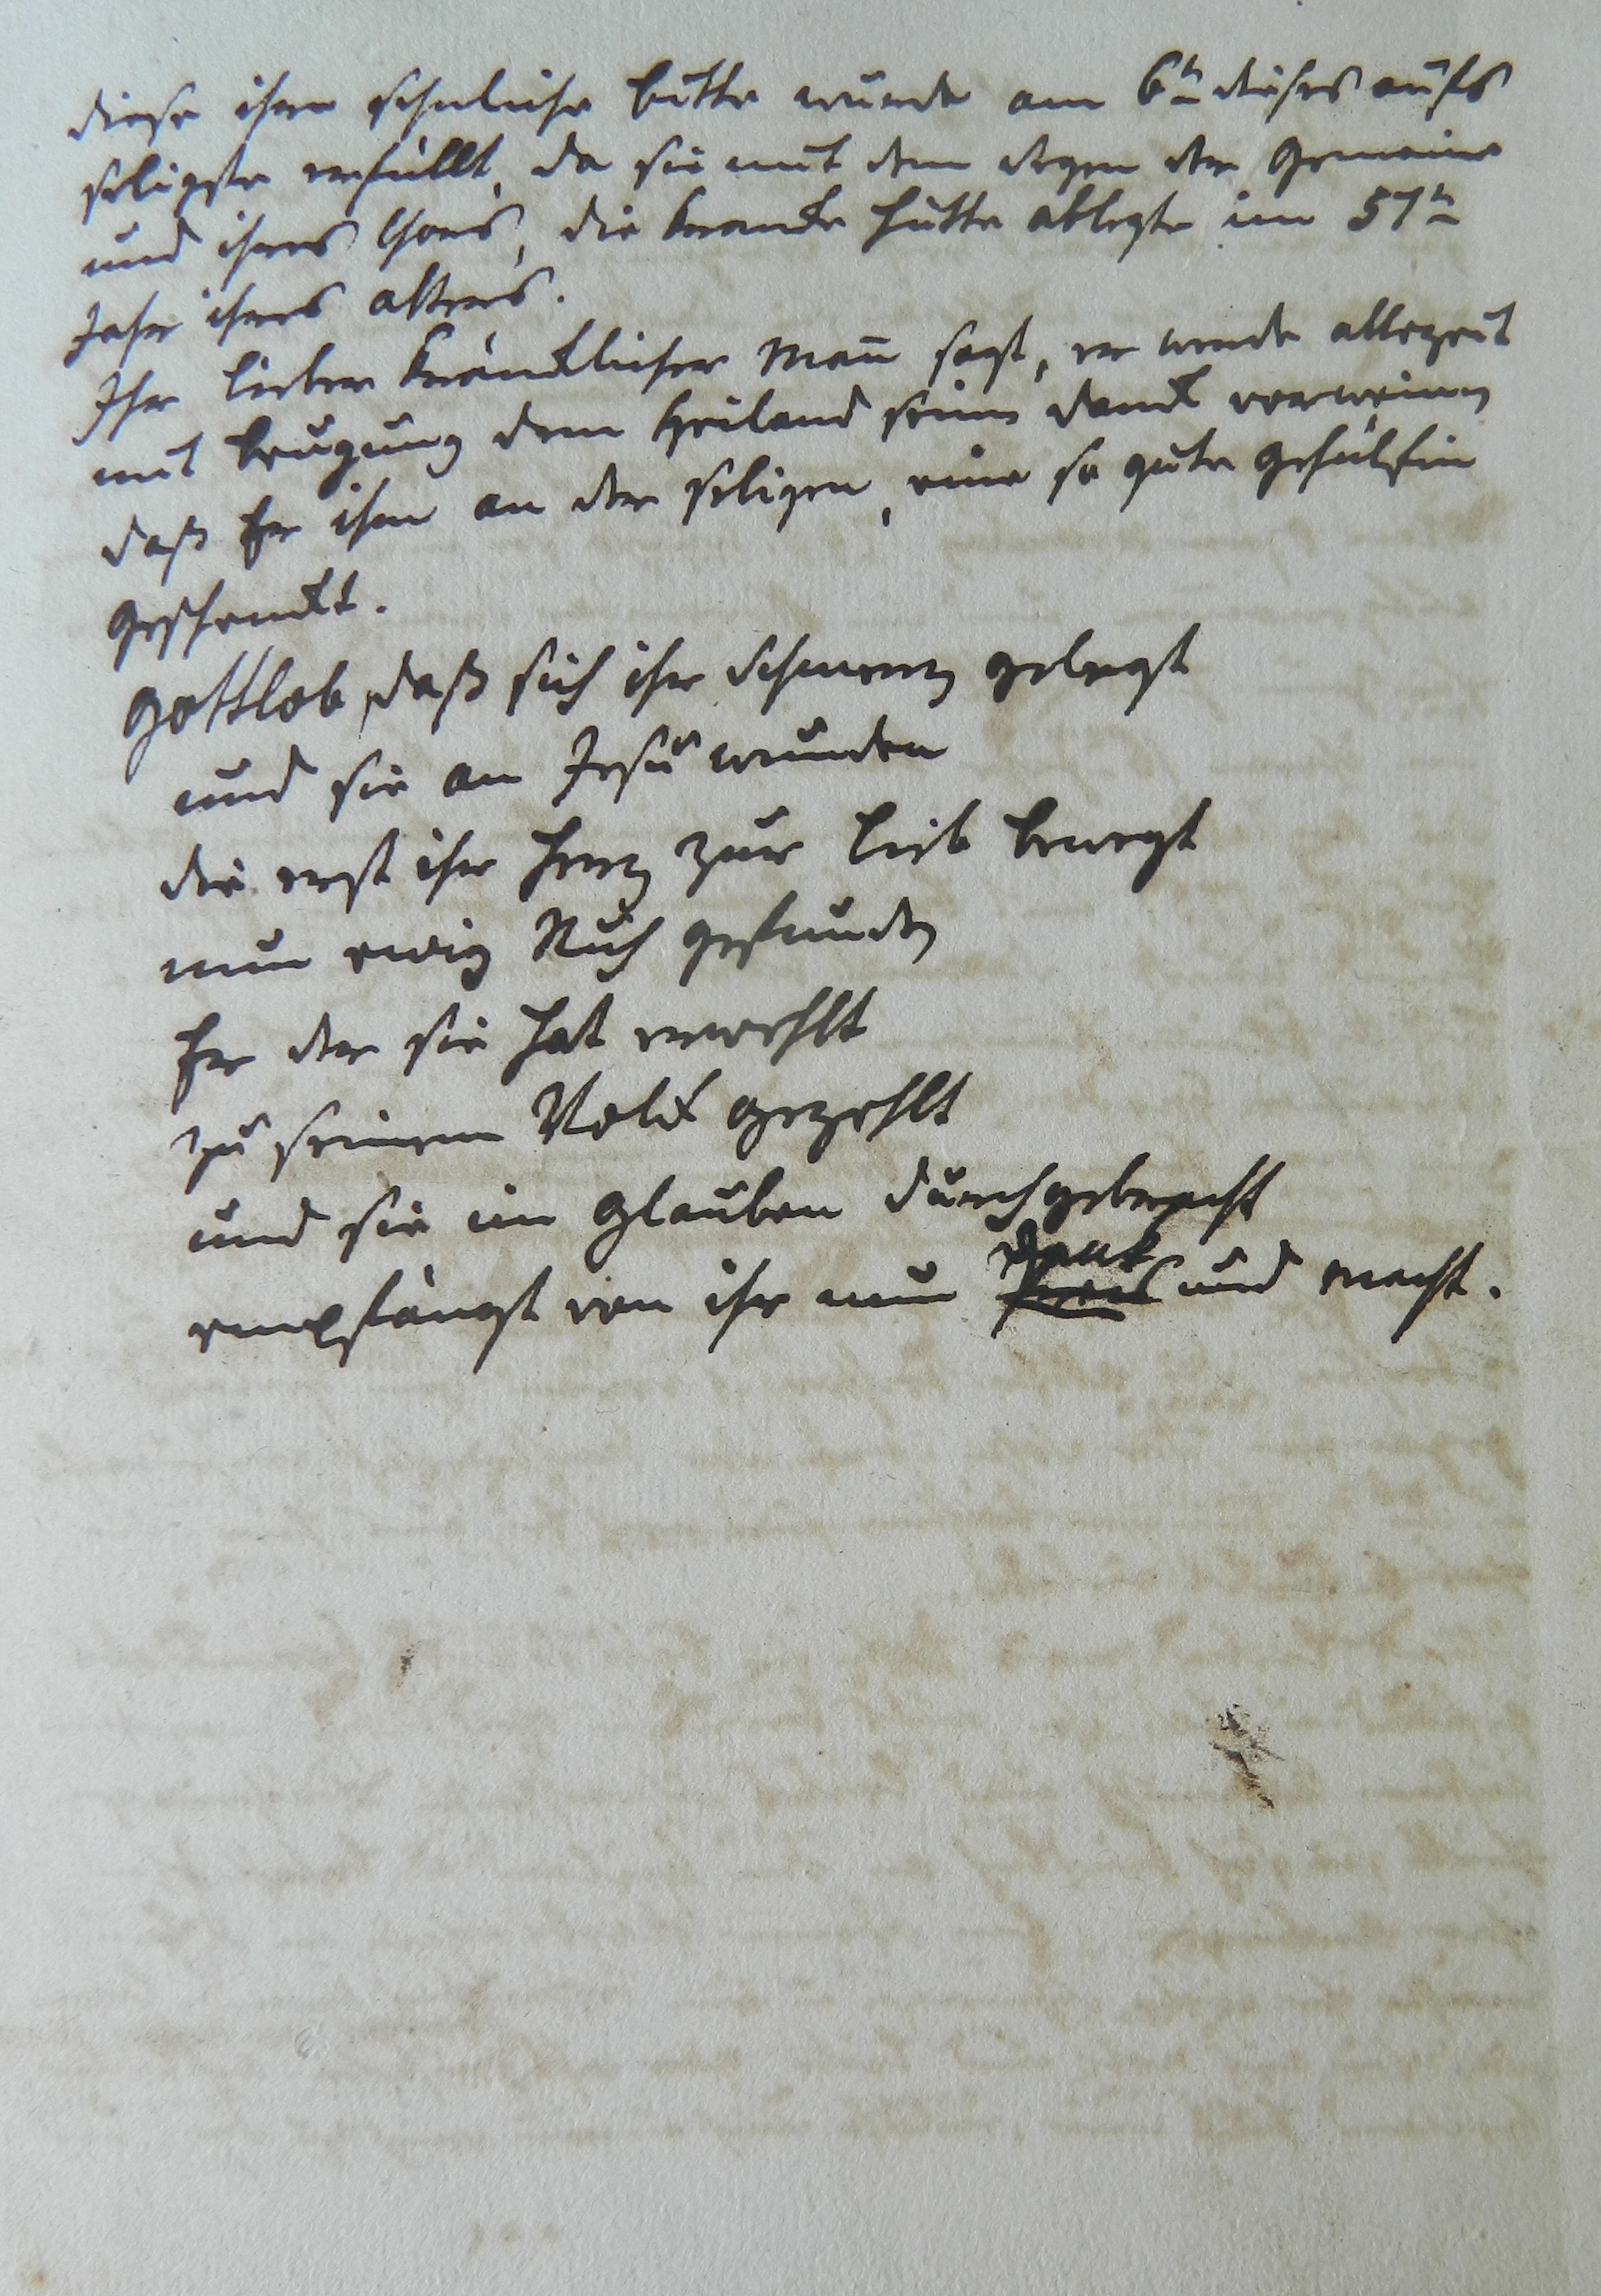 diese ihre sehnliche bitte wurde am 6ᵗⁿ dieses aufs
seligste erfüllt, da sie mit dem segen der Gemeine
und ihres Chors, die krancke hütte ablegte im 57ᵗⁿ
Jahr ihres alters.
Ihr lieber kräncklicher Mañ sagt, er werde allezeit
mit beugung dem Heiland seinen danck verweinen
daß Er ihm an der seligen, eine so gute gehülfin
geschenckt.
Gottlob, daß sich ihr Schmerz gelegt
und sie an Jesu wunden
die erst ihr Herz zur lieb bewegt
nun ewig Ruh gefunden
Er der sie hat erwehlt
zu seinem Volck gezehlt
und sie im glauben durchgebracht
danck
empfängt von ihr nun preis und macht.